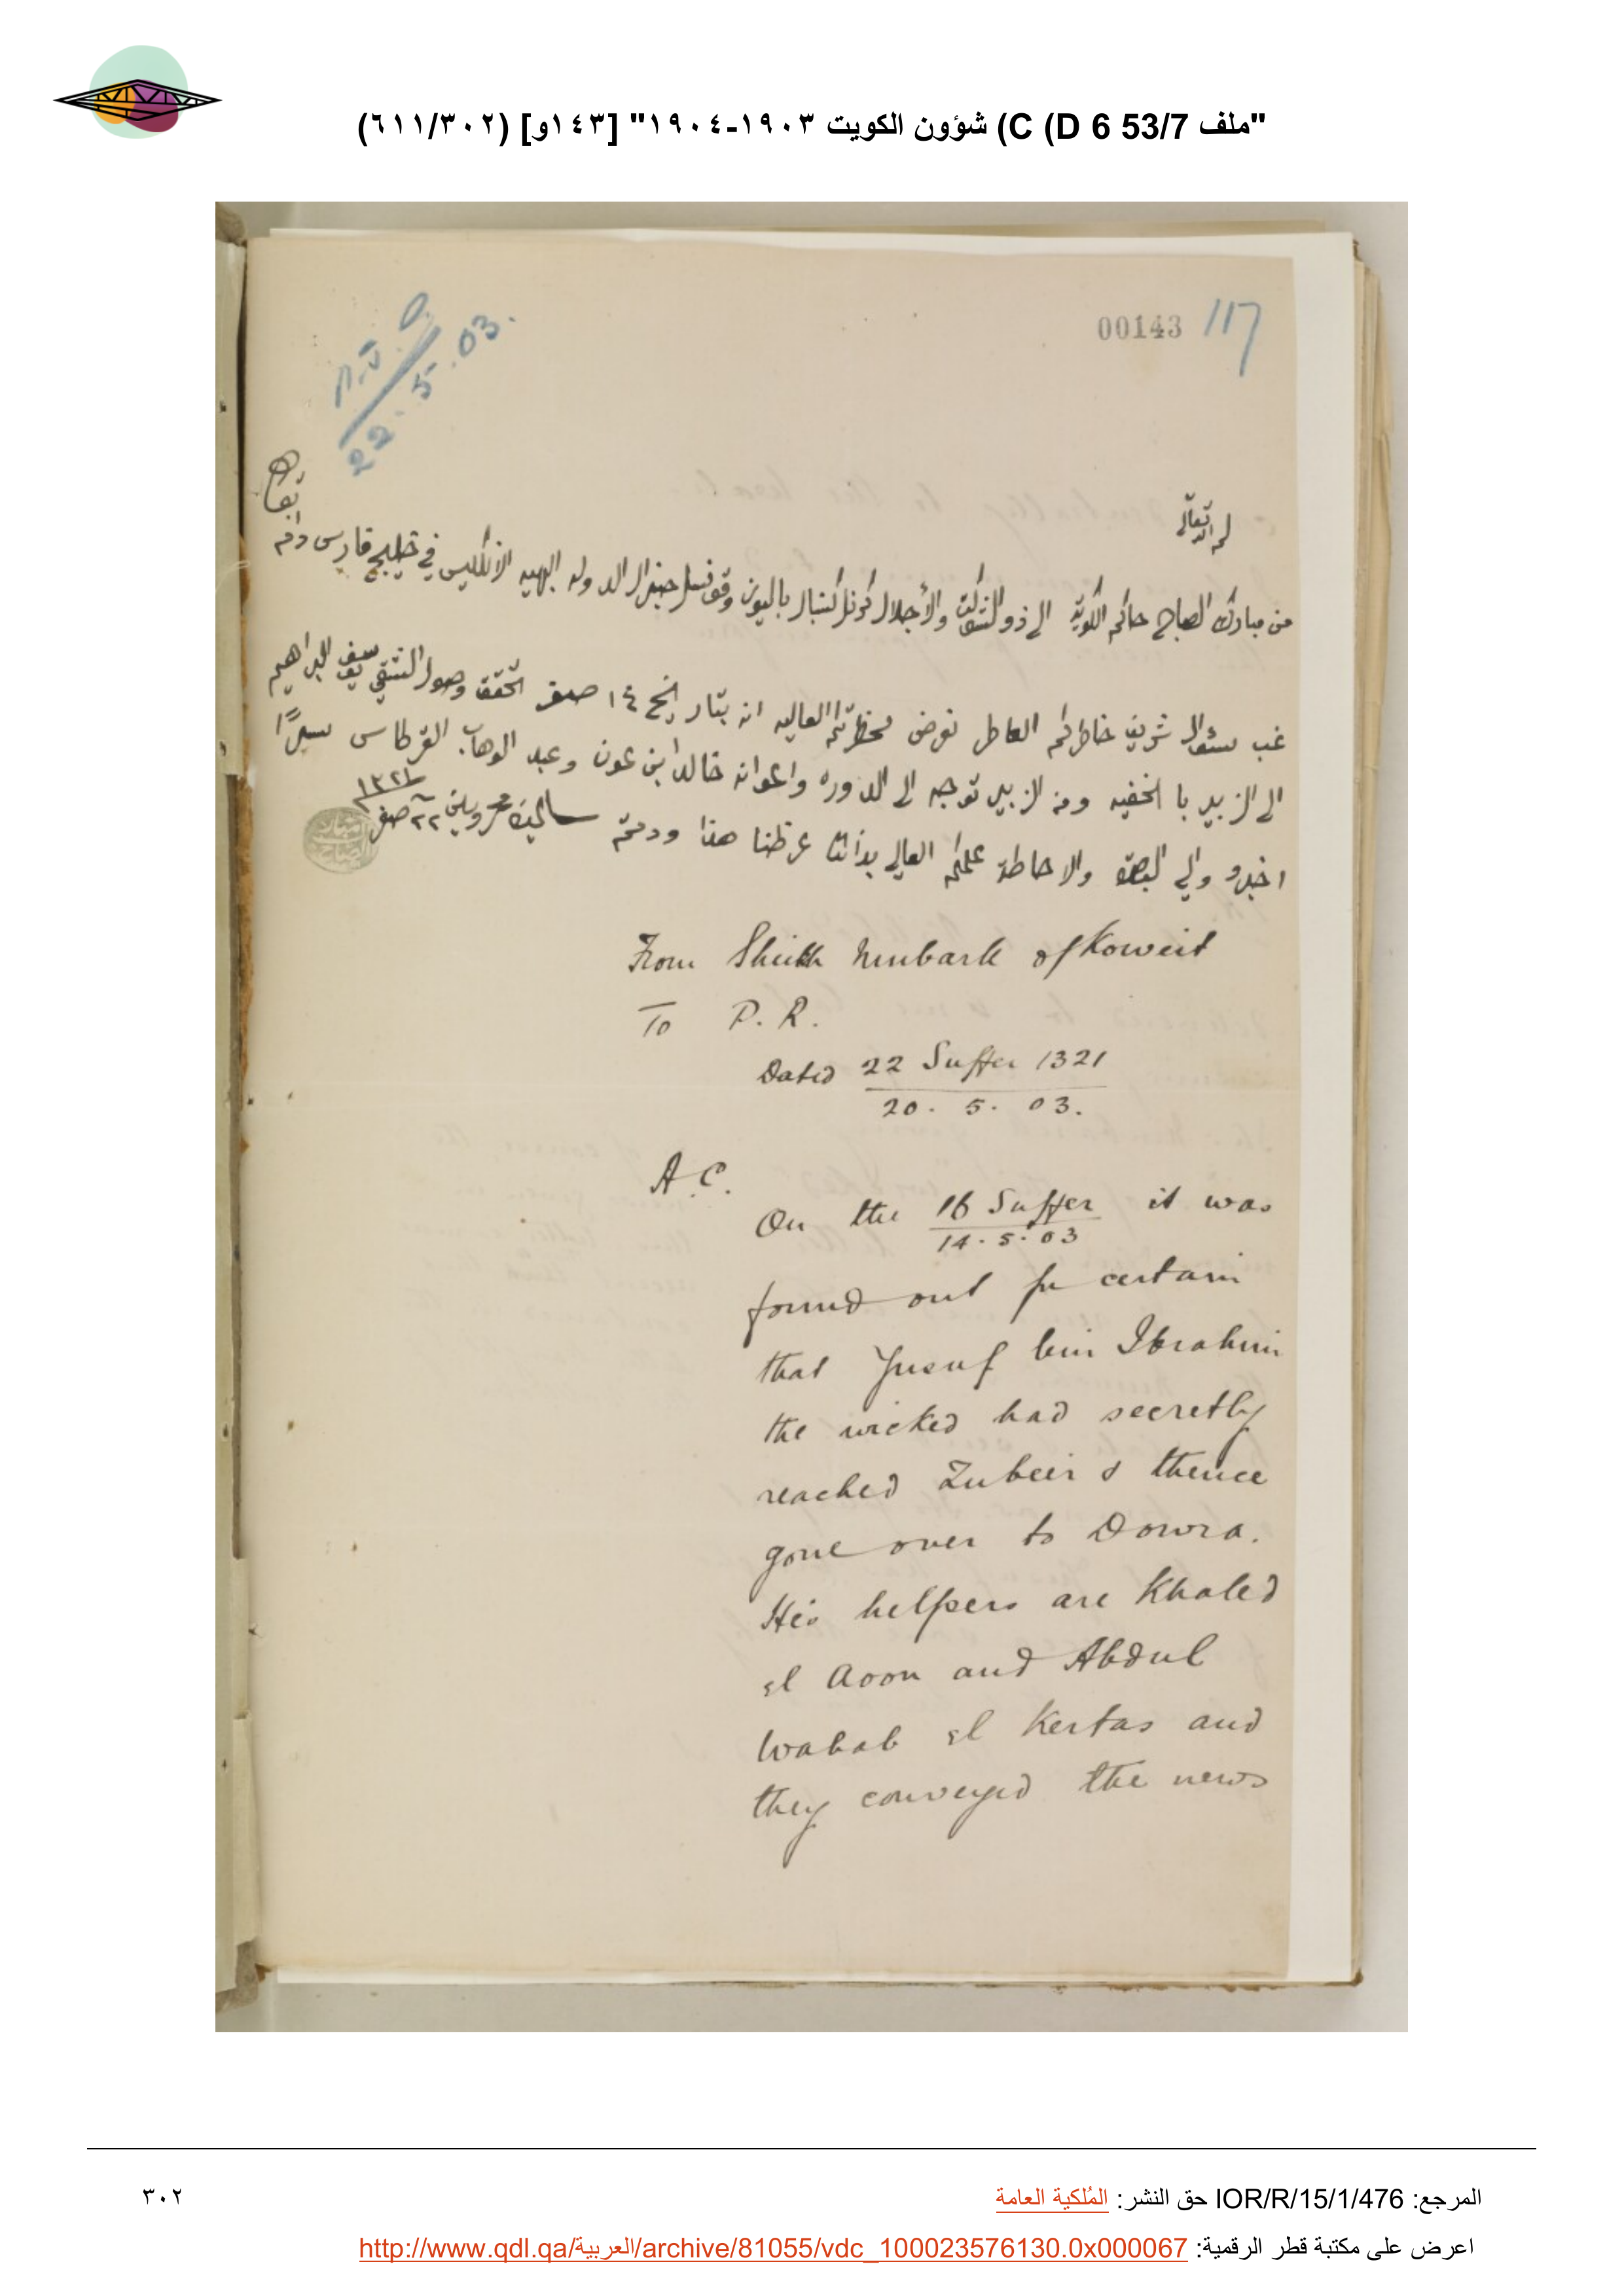 "ملف 53/7 D 6) C) شؤون الكويت ١٩٠٣-١٩٠٤" [١٤٣و] (٦١١/٣٠٢)
00143 117
22.5.03.
من مبارك الصباح حاكم الكويت الى ذو الشوكت والأجلال كرنل كنبال باليوز وقونسل جنرال الدوله البهيه الانكليس في خليج فارس دام
بقاه
غب سئوال شريف خاطركم العاطر نعرض لحظرتكم العاليه انه بتاريخ ١٤ صفر تحقق وصول الشقي يوسف البراهيم
الى الزبير با الخفيه ومن الزبير توجه الى الدوره واعوانه خالد ابن عون وعبد الوهاب القرطاس سيرًا
اخبرو والي البصرة والاحاطة علمكم العالي بذالك عرظنا هذا ودمتم سالمين محروسين ٢٢ صفر
١٣٢١
From Sheikh Mubark of Koweit
To P. R.
Dated 22 Suffer 1321
20. 5. 03.
A.C.
On the 16 Suffer it was
14.5.03
found out for certain
that Yusuf bin Ibrahim
the wicked had secretly
reached Zubeir & thence
gone over to Dowra.
His helpers are Khaled
el Aoon and Abdul
Wahab el Kertas and
they conveyed the news
المرجع: IOR/R/15/1/476 حق النشر: المُلكية العامة
٣٠٢
اعرض على مكتبة قطر الرقمية: http://www.qdl.qa/العربية/archive/81055/vdc_100023576130.0x000067